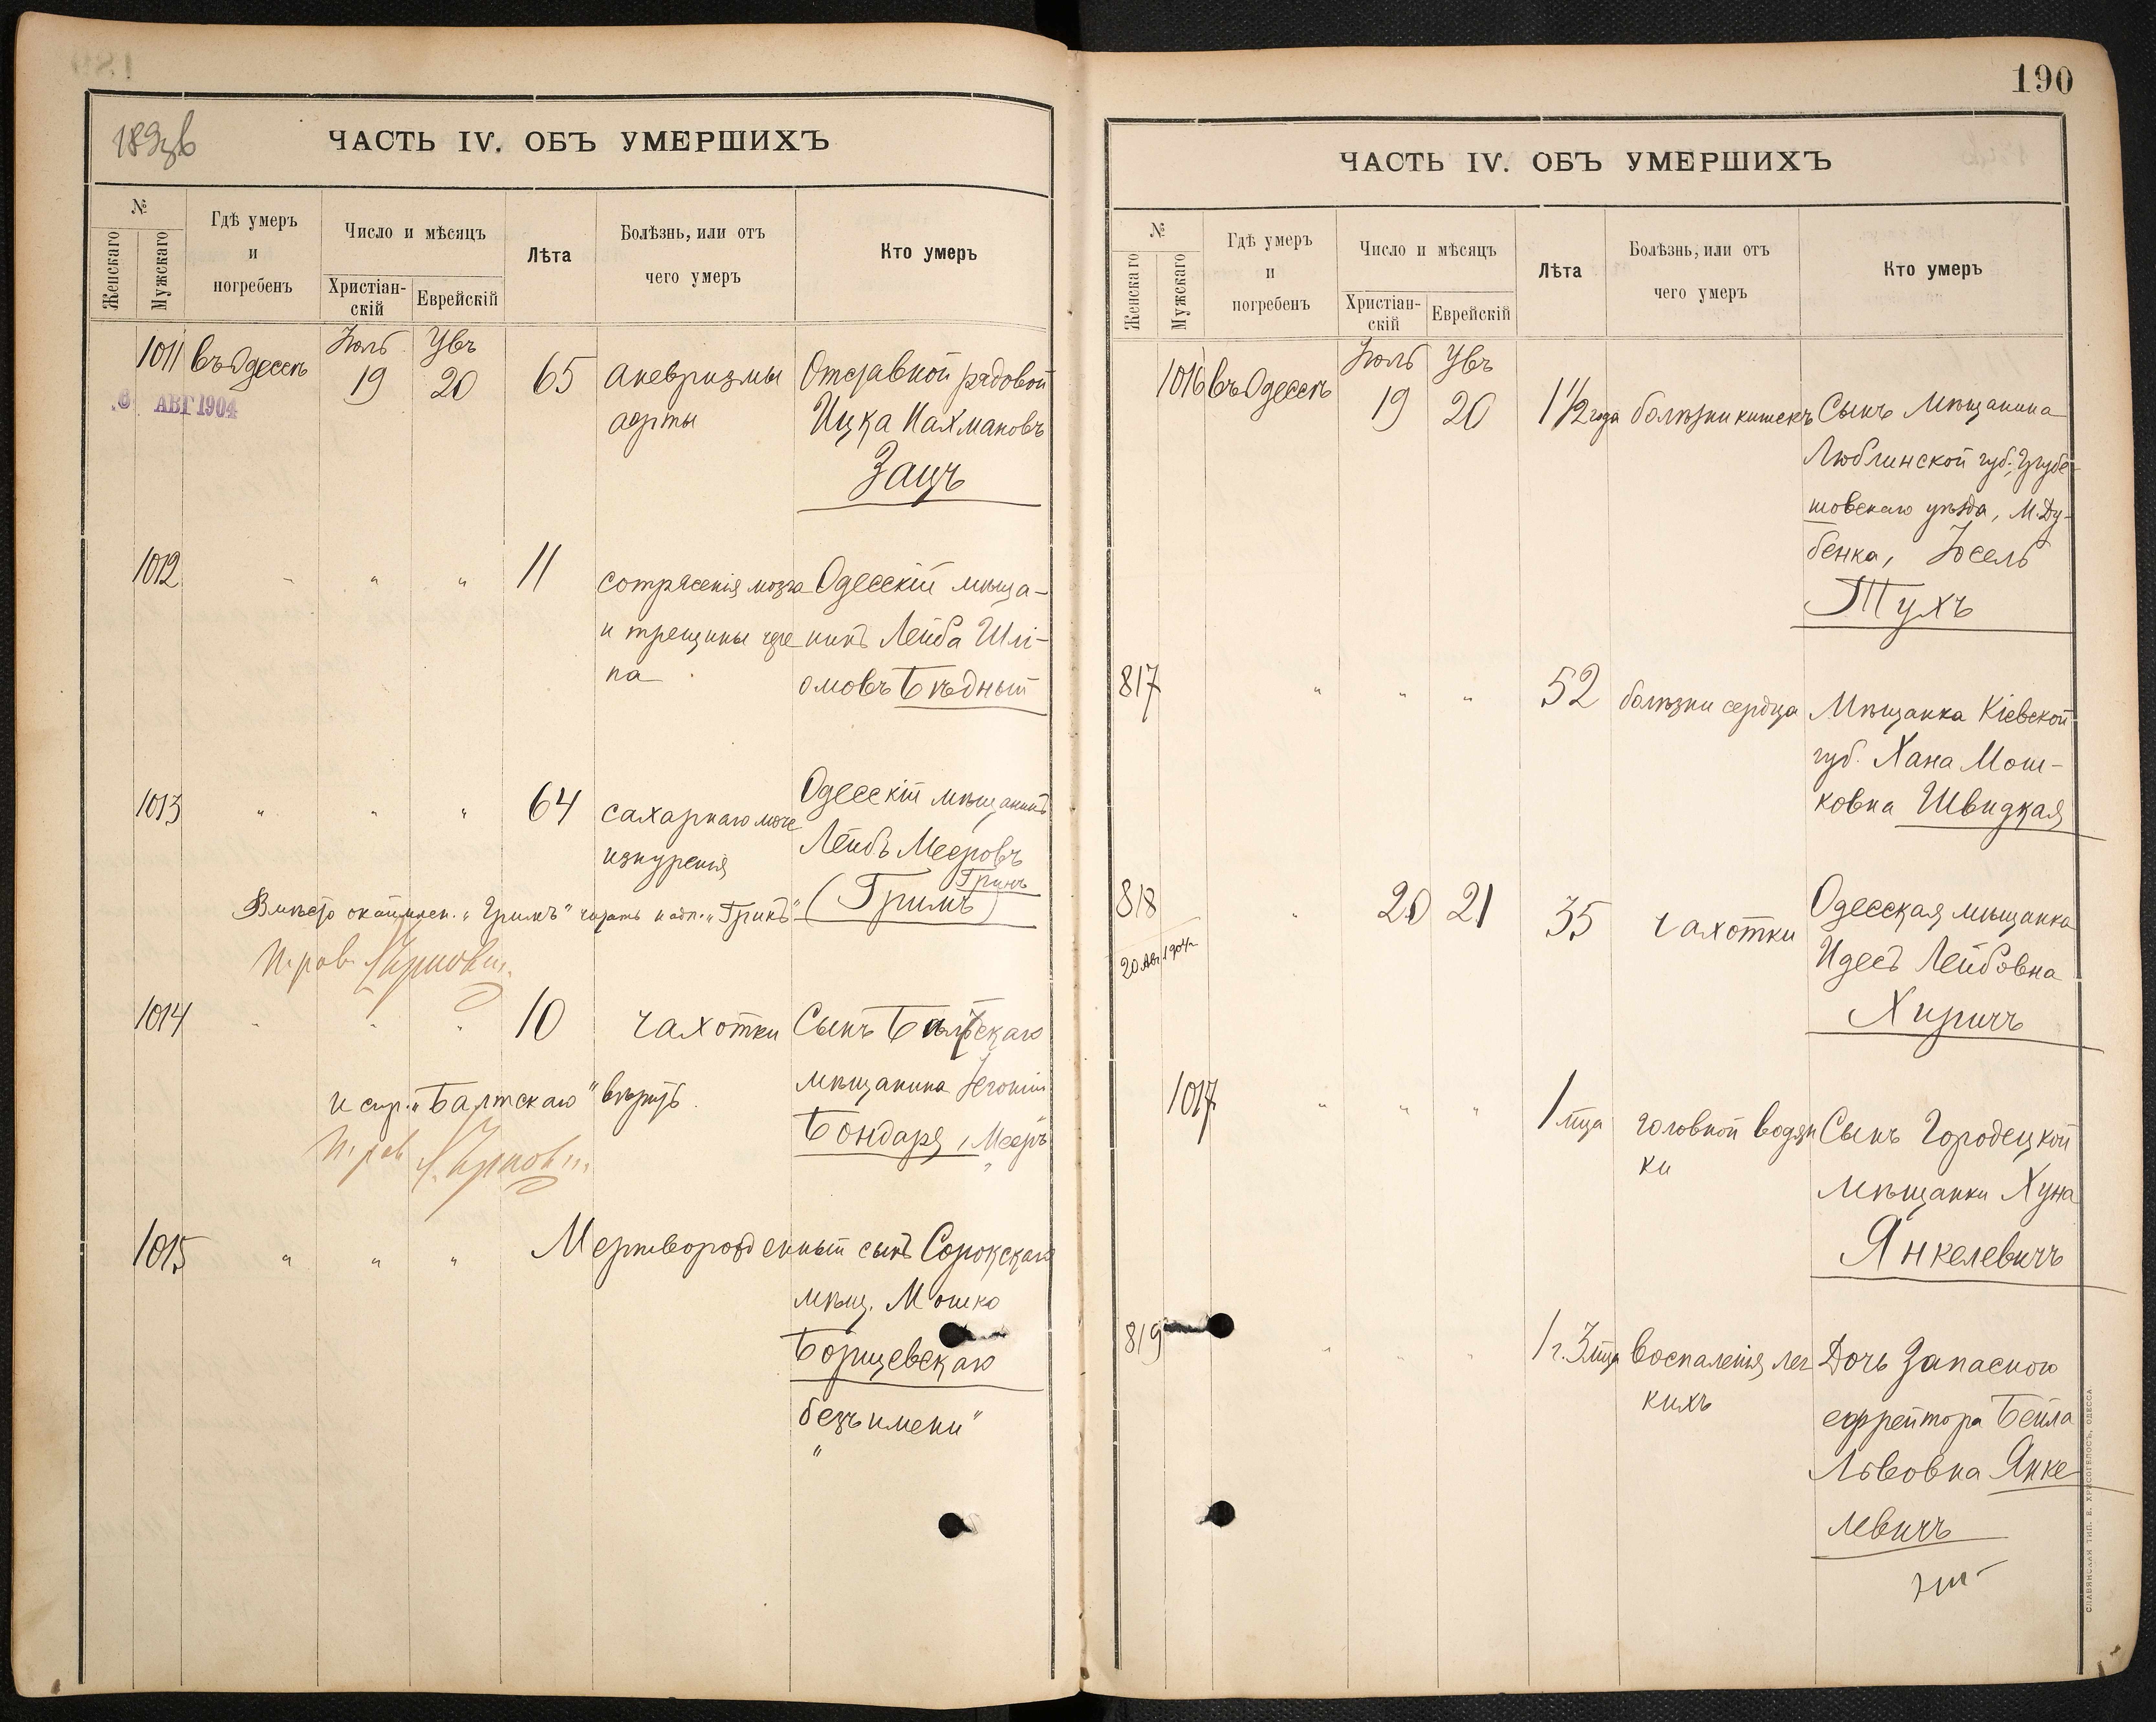 189об
ЧАСТЬ IV. ОБЪ УМЕРШИХЪ
№
Женскаго
Мужскаго
Гдѣ умеръ
и
погребенъ
Число и мѣсяцъ
Христіан-
скій
Еврейскій
Лѣта
Болѣзнь, или отъ
чего умеръ
Кто умеръ
Іюль Увъ
1011 въ Одессѣ 19 20 65 аневризмы Отставной рядовой
6 АВГ 1904
аорты Ицка Нахмановъ
Зацъ
1012 " " " 11 сотрясенія мозга Одесскій мѣща-
и трещины чере нинъ Лейба Шлі-
па омовъ Бѣдный
1013 " " " 64 сахарнаго моче Одесскій мѣщанинъ
изнуренія Лейбъ Мееровъ
Гринъ
(Гримъ)
Вмѣсто "Гримъ" читать надп. "Гринъ"
1014 " " " 10 чахотки Сынъ Балтскаго
мѣщанина
испр. "Балтскаго" вѣрить
Бондаря, Мееръ
1015 " " " Мертворожденный сынъ Сорокскаго
мѣщ. Мошко
Борщевскаго
"безъ имени"
190
ЧАСТЬ IV. ОБЪ УМЕРШИХЪ
№
Женскаго
Мужскаго
Гдѣ умеръ
и
погребенъ
Число и мѣсяцъ
Христіан-
скій
Еврейскій
Лѣта
Болѣзнь, или отъ
чего умеръ
Кто умеръ
Іюль Увъ
1016 въ Одессѣ 19 20 1 1/2 года болѣзни кишекъ Сынъ Мѣщанина
Люблинской губ. Грубе-
шовскаго уѣзда, М. Ду-
бенка, Іосель
Тухъ
817 " " " 52 болѣзни сердца Мѣщанка Кіевской
губ. Хана Мош-
ковна Швидкая
818 " 20 21 35 чахотки Одесская мѣщанка
20 Авг 1904 г
Идесъ Лейбовна
Хиричъ
1017 " " " 1 мца головной водян Сынъ Городецкой
ки мѣщанки Хуна
Янкелевичъ
819 " " " 1 г. 3 мца воспаленія лег Дочь Запаснаго
кихъ ефрейтора Бейла
Львовна Янке
левичъ
СЛАВЯНСКАЯ ТИП. Е. ХРИСОГЕЛОСЪ, ОДЕССА.